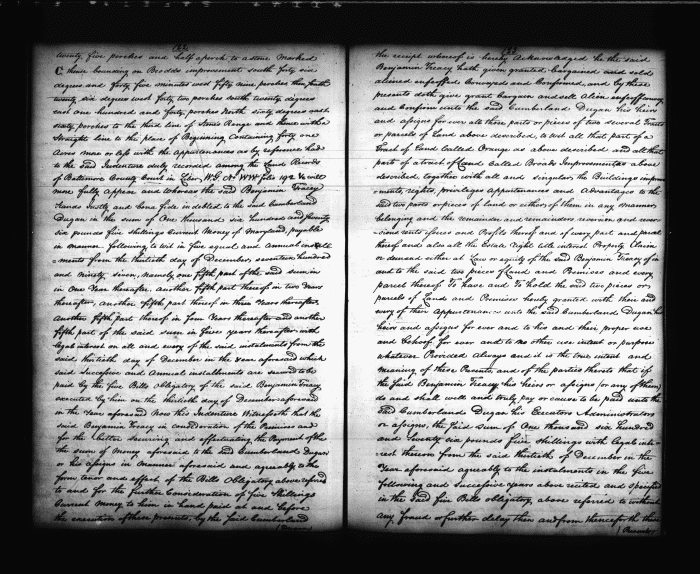 twenty five perches and half a perch to a stone marked
C thence bounding on Broads improvement south forty six
degrees and forty five minutes west fifty nine perches then south
twenty six degrees west forty two perches north twenty degrees
east one hundred and forty perches North sixty degrees east
sixty perches to the third line of Stones Range and then with a
Straight line to the place of Beginning Containing forty one
Acres more or less with the Appurtenances as by reference had
to the said Indenture duly recorded among the Land Records
of Baltimore County Court in Liber, W.G. No WW folio 192 &c will
more fully appear and whereas the said Benjamin Tracey
stands justly and bona fide indebted to the said Cumberland
Dugan in the sum of One thousand six hundred and seventy
six pounds five shillings Current Money of Maryland, payable
in manner following to wit in five equal and Annual install
-ments from the thirtieth day of December seventeen hundred
and ninety seven, namely, one fifth part of the said sum in
in One Year thereafter, another fifth part thereof in two Years
thereafter, another fifth part thereof in three Years thereafter,
Another fifth part thereof in four Years thereafter and another
fifth part of the said sum in five years thereafter with
legal interest on all and every of the said instalments from the
said thirtieth day of December in the Year aforesaid which
said Successive and Annual installments are secured to be
paid by the five Bills Obligatory of the said Benjamin Tracey,
executed by him on the thirtieth day of December aforesaid
in the Year aforesaid Now this Indenture Witnesseth that the
said Benjamin Tracey in consideration of the Premises and
for the better securing and effectuating the Payment of the
the sum of Money aforesaid to the said Cumberland Dugan
or his assigns in manner aforesaid and agreeably to the
form tenor and effect of the Bills Obligatory above referred
to and for the further Consideration of five Shillings
Current Money to him in hand paid at and before
the execution of these presents, by the said Cumberland
the receipt whereof is hereby Acknowledged he the said
Benjamin Tracey hath given granted bargained and sold
aliened enfeoffed Conveyed and Confirmed, and by these
presents doth give grant bargain and sell Alien enfeoff convey
and Confirm unto the said Cumberland Dugan his heirs
and assigns for ever all those parts or pieces of two several Tracts
or parcels of Land above described, to wit all that part of a
Tract of Land called Orange as above described and all that
part of a tract of Land Called Broads Improvement as above
described together with all and singular, the Buildings improv
-ments, rights, privileges appurtenances and Advantages to the
said two parts or pieces of land or either of them in any manner
belonging and the remainder and remainders reversion and rever
-sions rents issues and Profits thereof and of every part and parcel
thereof and also all the Estate right title interest Property Claim
or demand either at Law or equity of the said Benjamin Tracey of in
and to the said two pieces of Land and Premises and every
parcel thereof To have and To hold the said two pieces or
parcels of Land and Premises hereby granted with their and
every of their Appurtenances unto the said Cumberland Dugan his
heirs and assigns for ever and to his and their proper use
and behoof for ever and to no other use intent or purpose
whatever Provided Always and it is the true intent and
meaning of these Presents, and of the parties thereto that if
the said Benjamin Tracey his heirs or assigns (or any of them)
do and shall well and truly pay or cause to be paid unto the
said Cumberland Dugan his Executors Administrators
or assigns, the said sum of One thousand six hundred
and Seventy six pounds five shillings with legal inte-
rest thereon from the said thirtieth of December in the
Year aforesaid agreeably to the instalments in the five
following and Successive years above recited and specified
in the said five Bills obligatory, above referred to without
any fraud or further delay then and from thenceforth these